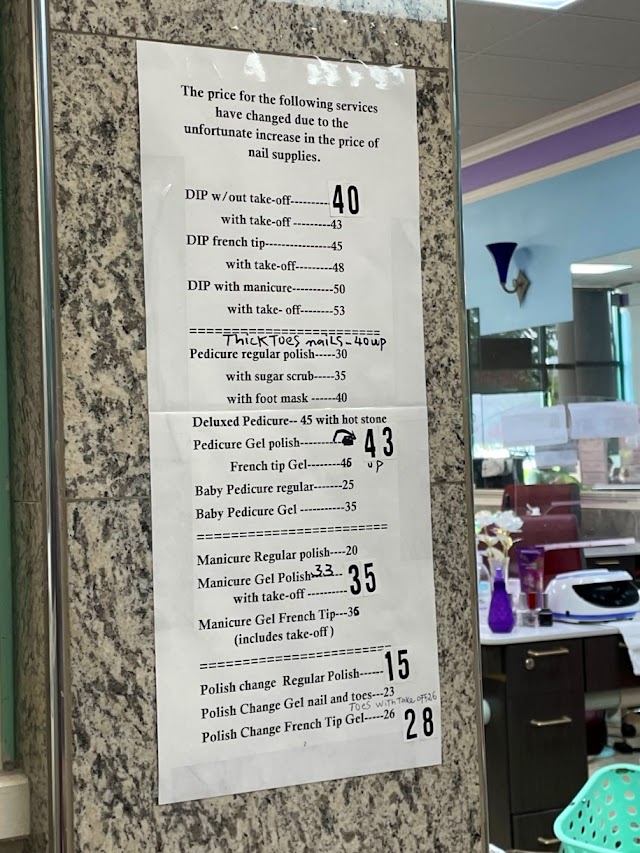 The price for the following services
have changed due to the
unfortunate increase in the price of
nail supplies.
DIP w/out take-off--------- 40
with take-off ---------43
DIP french tip----------------45
with take-off--------48
DIP with manicure----------50
with take- off--------53
============================
THickToes nails-40up
Pedicure regular polish-----30
with sugar scrub-----35
with foot mask ------40
Deluxed Pedicure-- 45 with hot stone
Pedicure Gel polish--------- 43
up
French tip Gel--------46
Baby Pedicure regular-------25
Baby Pedicure Gel -----------35
============================
Manicure Regular polish----20
Manicure Gel Polish 33---
with take-off ---------- 35
Manicure Gel French Tip---36
(includes take-off )
============================
Polish change Regular Polish----- 15
Polish Change Gel nail and toes---23
Toes with Take off 26
Polish Change French Tip Gel-----26 28